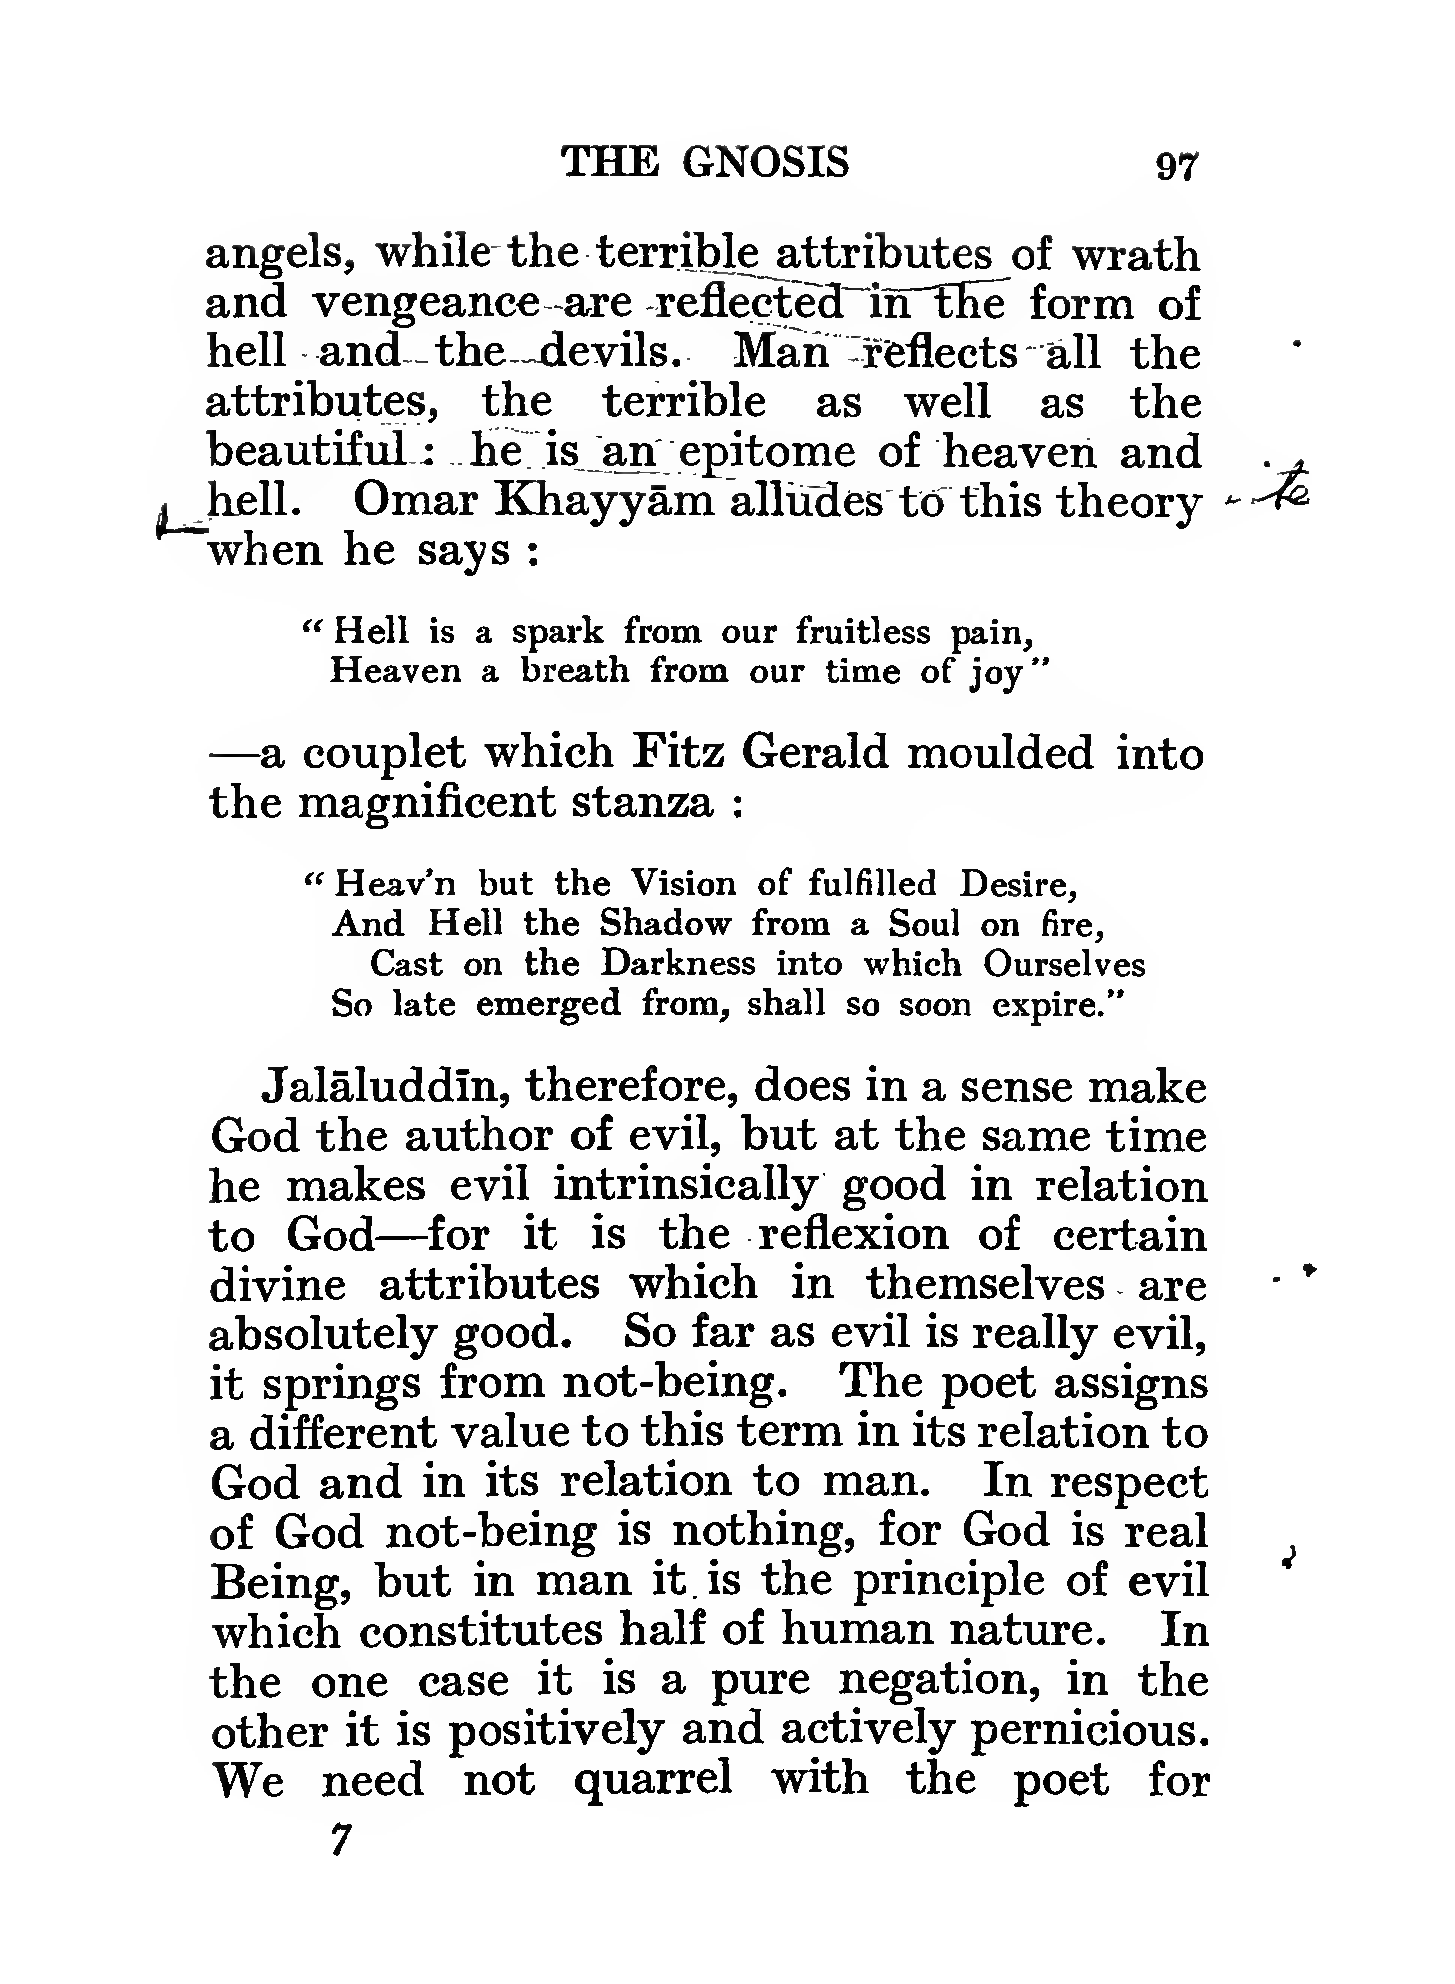 THE GNOSIS 97
angels, while the terrible attributes of wrath
and vengeance are reflected in the form of
hell and the devils. Man reflects all the
attributes, the terrible as well as the
beautiful : he is an epitome of heaven and
hell. Omar Khayyām alludes to this theory
when he says :
“ Hell is a spark from our fruitless pain,
Heaven a breath from our time of joy”
—a couplet which Fitz Gerald moulded into
the magnificent stanza :
“ Heav’n but the Vision of fulfilled Desire,
And Hell the Shadow from a Soul on fire,
Cast on the Darkness into which Ourselves
So late emerged from, shall so soon expire.”
Jalāluddīn, therefore, does in a sense make
God the author of evil, but at the same time
he makes evil intrinsically good in relation
to God—for it is the reflexion of certain
divine attributes which in themselves are
absolutely good. So far as evil is really evil,
it springs from not-being. The poet assigns
a different value to this term in its relation to
God and in its relation to man. In respect
of God not-being is nothing, for God is real
Being, but in man it is the principle of evil
which constitutes half of human nature. In
the one case it is a pure negation, in the
other it is positively and actively pernicious.
We need not quarrel with the poet for
7